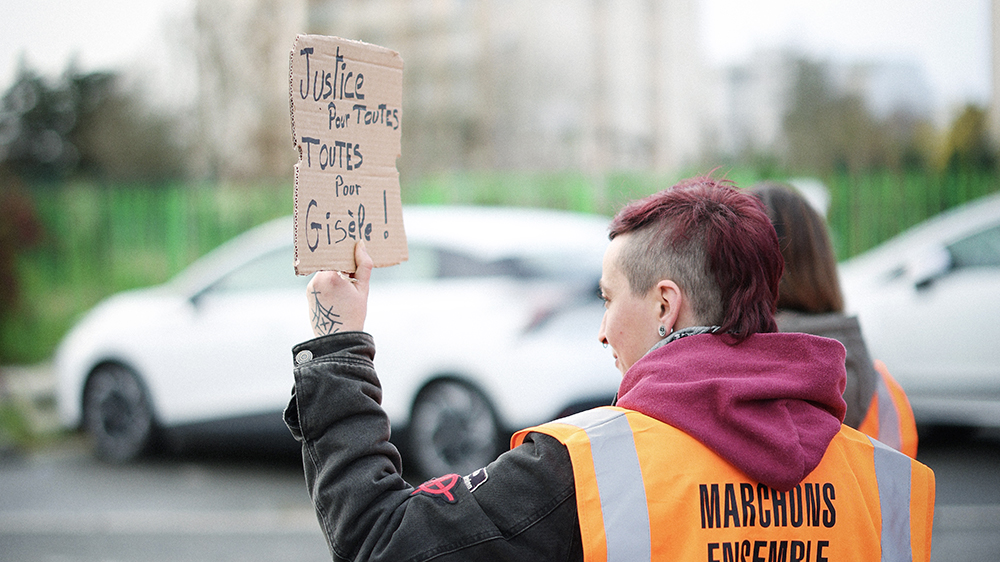 Justice
Pour TOUTES
TOUTES
Pour
Gisèle !
MARCHONS
ENSEMBLE